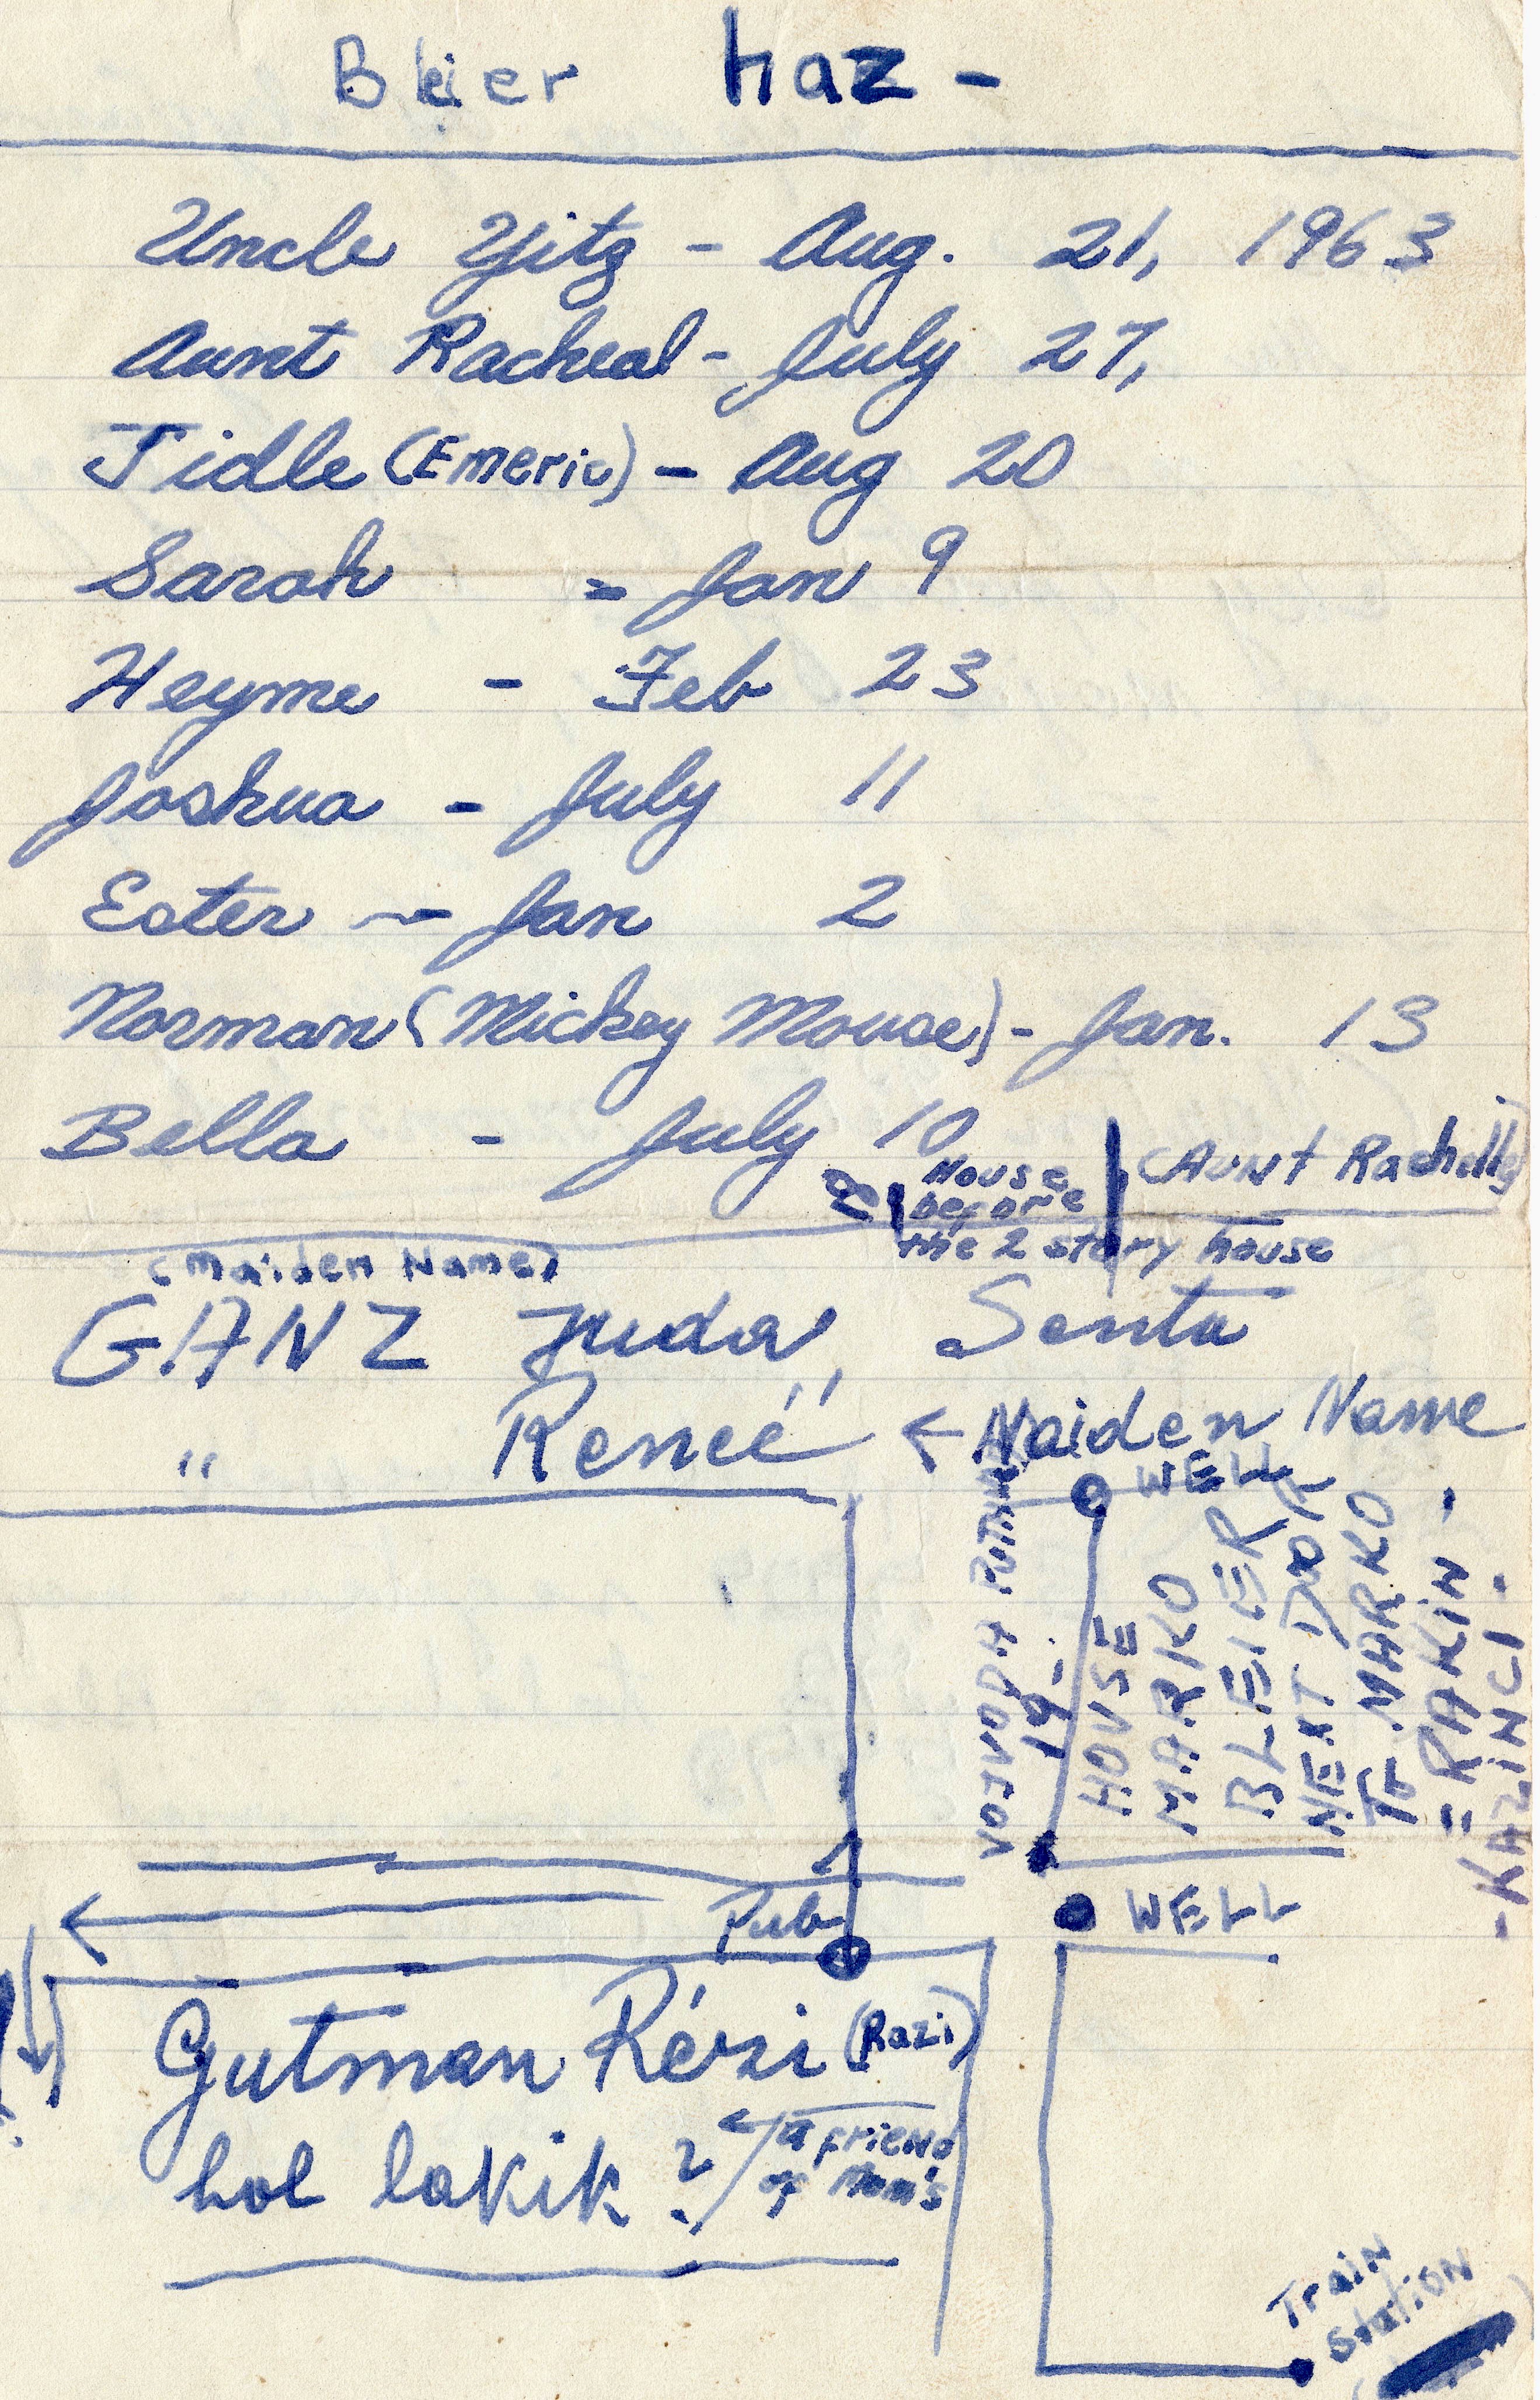 Bleier haz -
Uncle Yitz - Aug. 21, 1963
Aunt Racheal - July 27,
Jidle (Emeric) - Aug 20
Sarah = Jan 9
Heyme - Feb 23
Joshua - July 11
Ester - Jan 2
Norman (Mickey Mouse) - Jan. 13
Bella - July 10
House
before
the 2 story house
(Aunt Rachel's)
(Maiden Name)
GANZ Juda, Senta
" Reneé ← Maiden Name
WELL
VOJVODA PUTNIKA
19-
HOUSE
MARKO
BLEIER
NEXT DOOR
TO MARKO
= RAKIN -
- KAZINCI -
Pub
WELL
Gutman Rézi (Razi)
hol lakik?
a friend
of Mom's
Train
Station